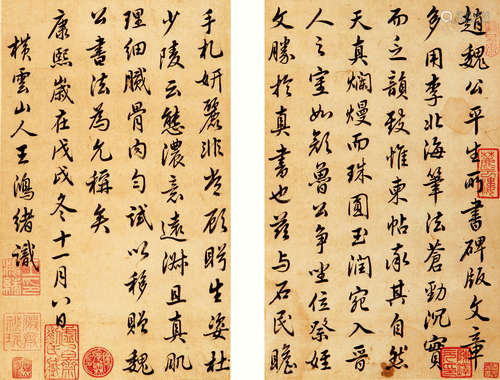 趙魏公平生所書碑版文章
多用李北海筆法蒼勁沉實
而乏韻致惟柬帖承其自然
天真爛熳而珠圓玉潤宛入晉
人之室如顏魯公爭坐位祭姪
文勝於真書也茲与石民瞻
手札妍麗非常顧盻生姿杜
少陵云態濃意遠淋且真肌
理細膩骨肉勻試以移贈魏
公書法為允稱矣
康熙歲在戊戌冬十一月八日
橫雲山人王鴻緒識